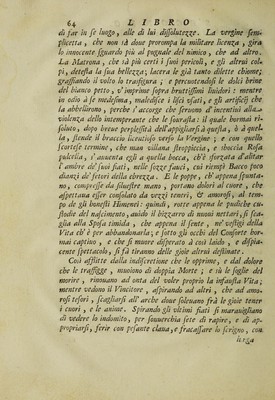 64 LIBRO
di far in se luogo, alle di lui dissolutezze. La vergine sem-
plicetta, che non sà dove prorompa la militare licenza, gira
lo innocente sguardo più al pugnale del nimico, che ad altro.
La Matrona, che sà più certi i suoi pericoli, e gli altrui col-
pi, detesta la sua bellezza; lacera le già tanto dilette chiome;
graffiando il volto lo trasfigura; e percuotendosi le dolci brine
del bianco petto, v'imprime sopra bruttissimi lividori: mentre
in odio à se medesima, maledisce i lisci usati, e gli artificj che
la abbellirono, perche s'accorge che furono d'incentivi alla
violenza dello intemperante che le sovrasta: il quale hormai ri-
soluto, dopo breve perplessità dell'appigliarsi à questa, ò à quel-
la, stende il braccio licentioso verso la Vergine; e con quello
scortese termine, che man villana stroppiccia, e sboccia Rosa
pulcella, s'avventa egli a quella bocca, ch'è sforzata d'alitar
l'ambre de' suoi fiati, nelle sozze fauci, cui riempì Bacco poco
dianzi de' fetori della ebrezza. E le poppe, ch'appena spunta-
no, compresse da silvestre mano, portano dolori al cuore, che
aspettava esser consolato da vezzi teneri, & amorosi, al tem-
po de gli honesti Himenei: quindi, rotte appena le pudiche cu-
stodie del nascimento, avido il bizzarro di nuovi nettari, si sca-
glia alla Sposa timida, che appena il sente, ne' vestigj della
Vita ch'è per abbandonarla; e sotto gli occhi del Consorte hor-
mai captivo, e che si muore disperato à così laido, e dispia-
cente spettacolo, si fà tiranno delle gioie altrui destinate.
Così afflitte dalla indiscretione che le opprime, e dal dolore
che le trafigge, muoiono di doppia Morte; e sù le soglie del
morire, rinovano ad onta del voler proprio la infausta Vita;
mentre vedono il Vincitore, aspirando ad altri, che ad amo-
rosi tesori, scagliarsi all'arche dove soleano frà le gioie tener
i cuori, e le anime. Spirando gli ultimi fiati si maravigliano
di vedere lo indomito, per soverchia sete di rapire, e di ap-
propriarsi, ferir con pesante clava, e fracassare lo scrigno, con
lieva